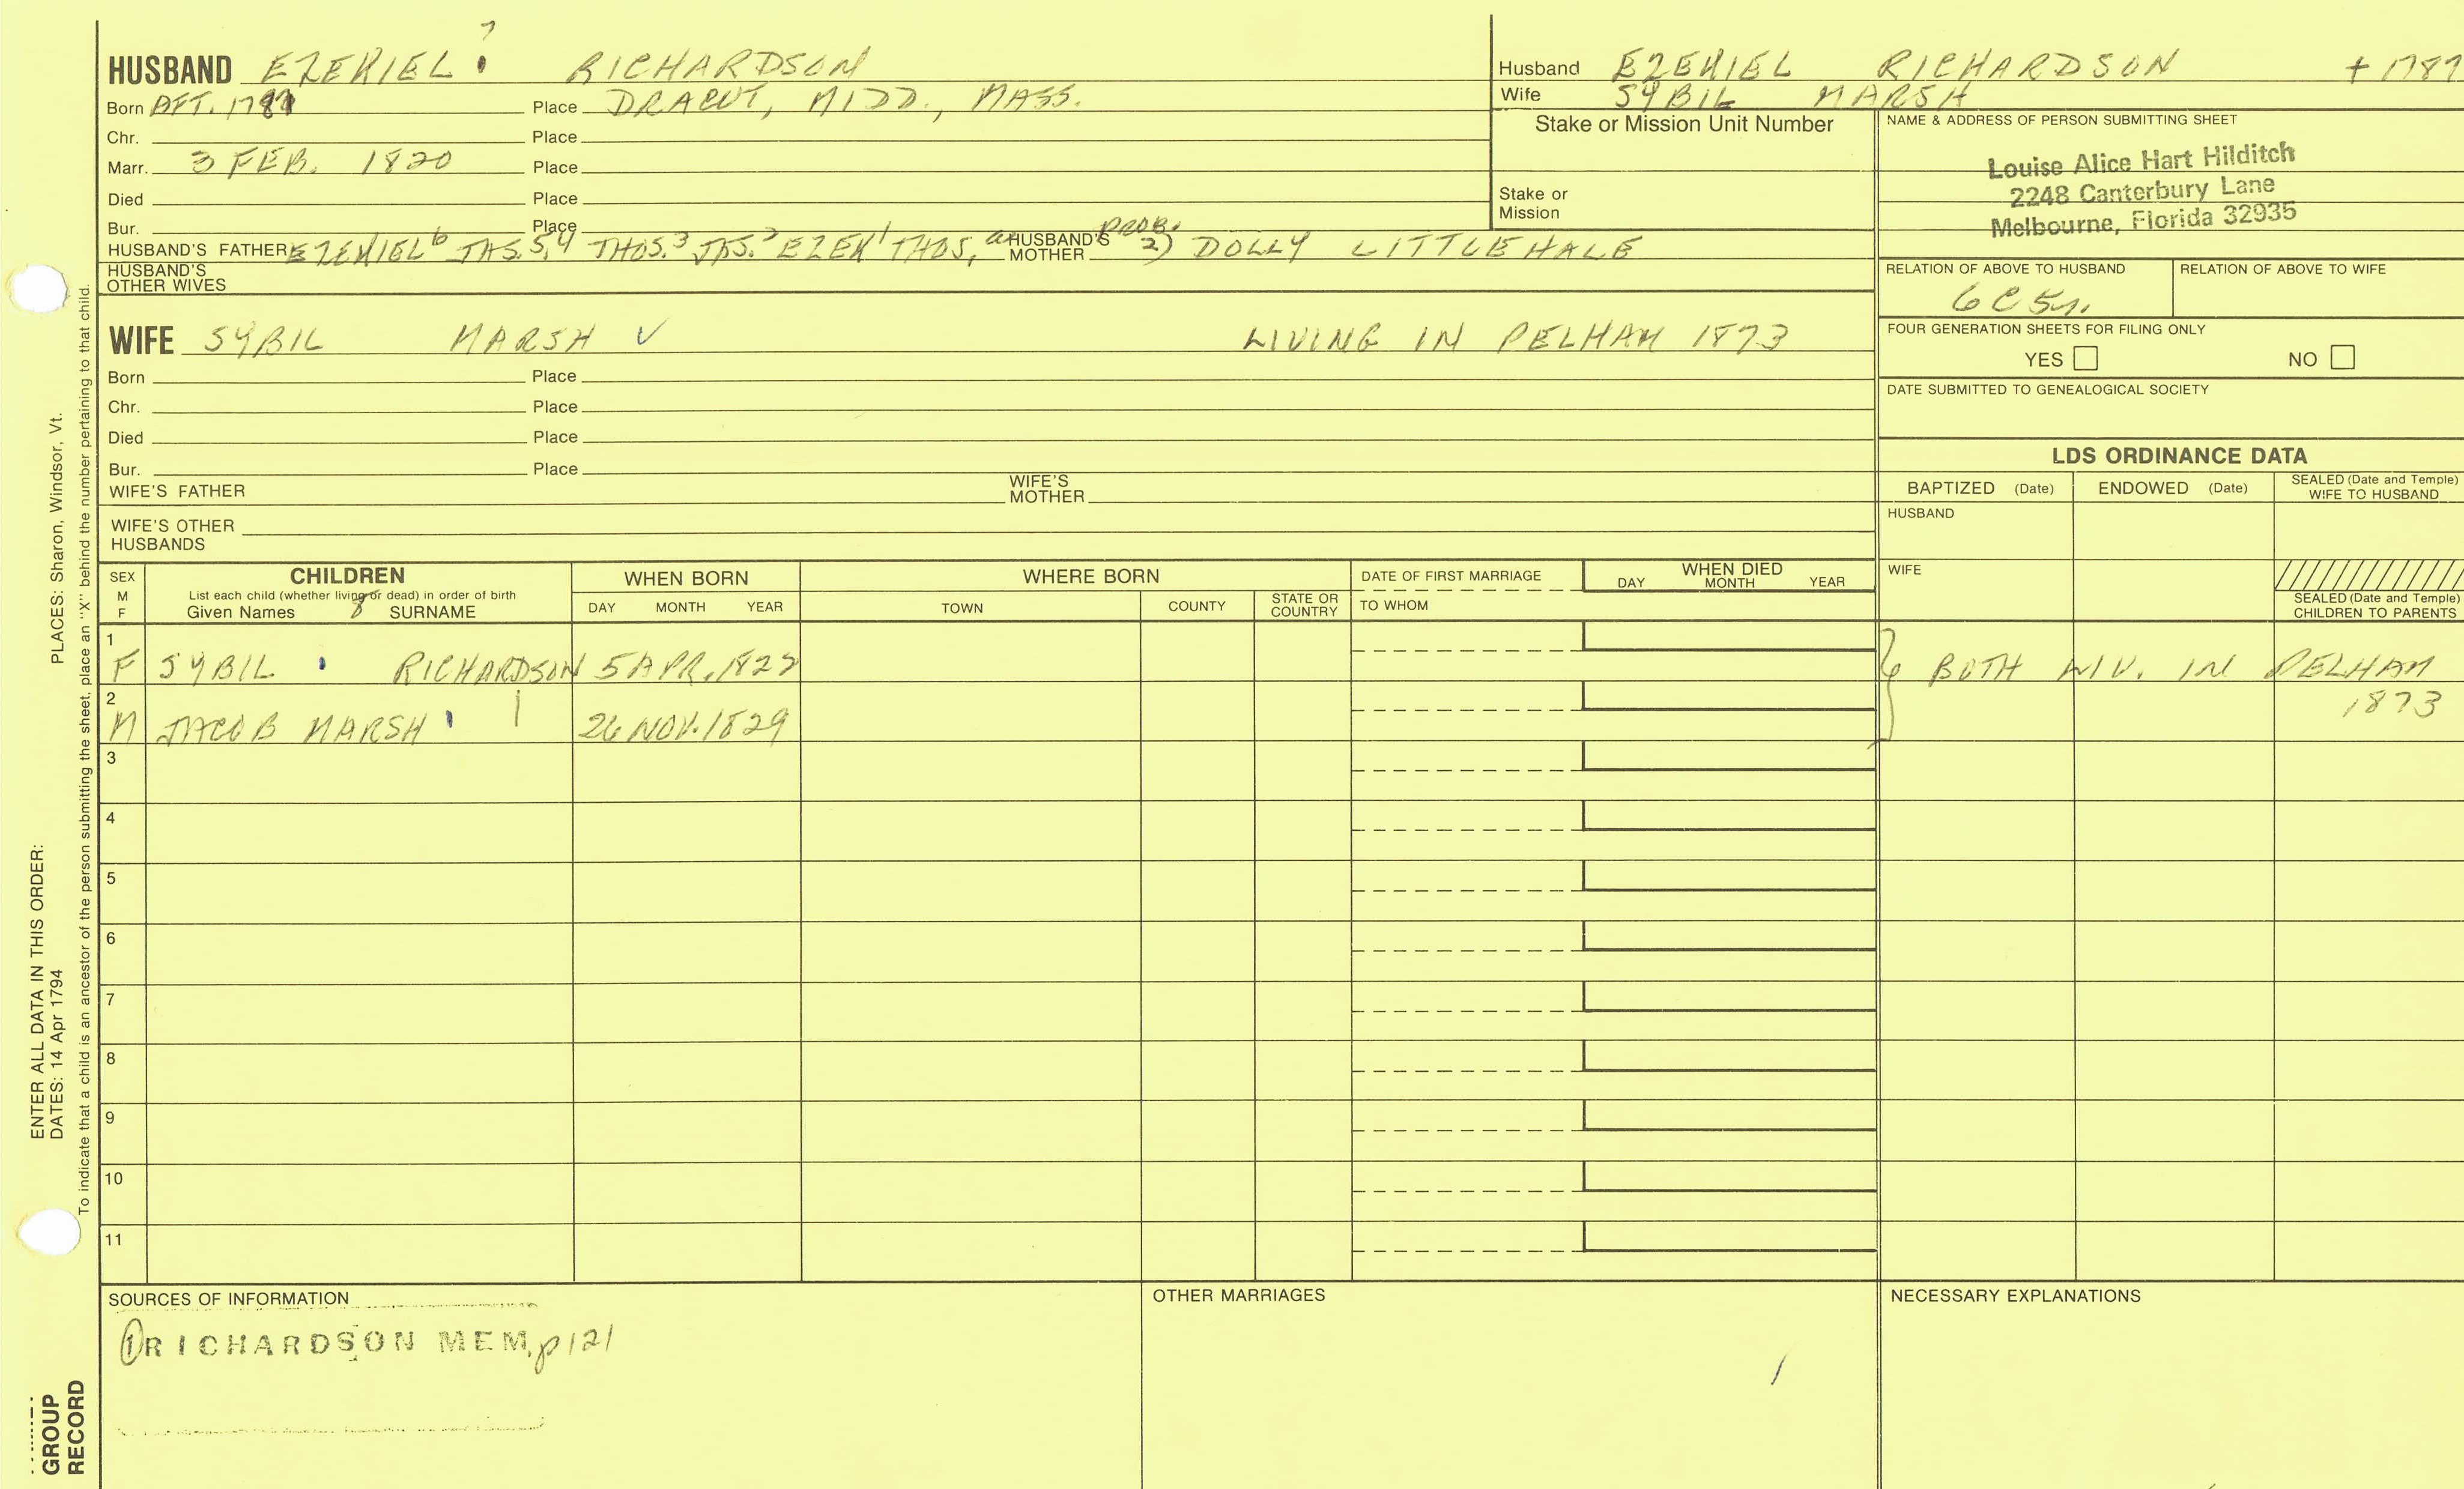 HUSBAND EZEKIEL 7 RICHARDSON
Born AFT. Place DRACUT, MIDD., MASS.
Chr. Place
Marr. 3 FEB. 1820 Place
Died Place
Bur. Place
HUSBAND'S FATHER EZEKIEL 6 JAS. 5, 4 THOS. 3 JAS. 2 EZEK 1 THOS, a HUSBAND'S MOTHER PROB. 2) DOLLY LITTLEHALE
HUSBAND'S OTHER WIVES
Husband EZEKIEL RICHARDSON + 1787
Wife SYBIL MARSH
Stake or Mission Unit Number
Stake or Mission
NAME & ADDRESS OF PERSON SUBMITTING SHEET
Louise Alice Hart Hilditch
2248 Canterbury Lane
Melbourne, Florida 32935
RELATION OF ABOVE TO HUSBAND RELATION OF ABOVE TO WIFE
6C5r.
FOUR GENERATION SHEETS FOR FILING ONLY
YES NO
DATE SUBMITTED TO GENEALOGICAL SOCIETY
WIFE SYBIL MARSH LIVING IN PELHAM 1873
Born Place
Chr. Place
Died Place
Bur. Place
WIFE'S FATHER WIFE'S MOTHER
WIFE'S OTHER HUSBANDS
LDS ORDINANCE DATA
BAPTIZED (Date) ENDOWED (Date) SEALED (Date and Temple) WIFE TO HUSBAND
HUSBAND
WIFE
SEALED (Date and Temple) CHILDREN TO PARENTS
SEX M F
CHILDREN
List each child (whether living or dead) in order of birth
Given Names 8 SURNAME
WHEN BORN
DAY MONTH YEAR
WHERE BORN
TOWN COUNTY STATE OR COUNTRY
DATE OF FIRST MARRIAGE
TO WHOM
WHEN DIED
DAY MONTH YEAR
1
F SYBIL RICHARDSON 5 APR. 1822 BOTH LIV. IN PELHAM
1873
2
M JACOB MARSH 26 NOV. 1829
3
4
5
6
7
8
9
10
11
SOURCES OF INFORMATION
① RICHARDSON MEM. p121
OTHER MARRIAGES
NECESSARY EXPLANATIONS
ENTER ALL DATA IN THIS ORDER:
DATES: 14 Apr 1794 PLACES: Sharon, Windsor, Vt.
To indicate that a child is an ancestor of the person submitting the sheet, place an "X" behind the number pertaining to that child.
GROUP
RECORD